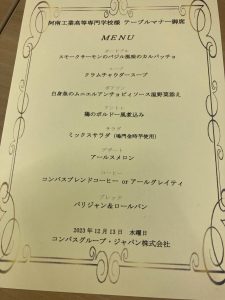 阿南工業高等専門学校様 テーブルマナー御席
MENU
オードブル
スモークサーモンのバジル風味のカルパッチョ
スープ
クラムチャウダースープ
ポアソン
白身魚のムニエルアンチョビィソース温野菜添え
アントレ
鶏のボルドー風煮込み
サラダ
ミックスサラダ（鳴門金時芋使用）
デザート
アールスメロン
コーヒー
コンパスブレンドコーヒー or アールグレイティ
ブレッド
パリジャン＆ロールパン
2023年12月13日 水曜日
コンパスグループ・ジャパン株式会社